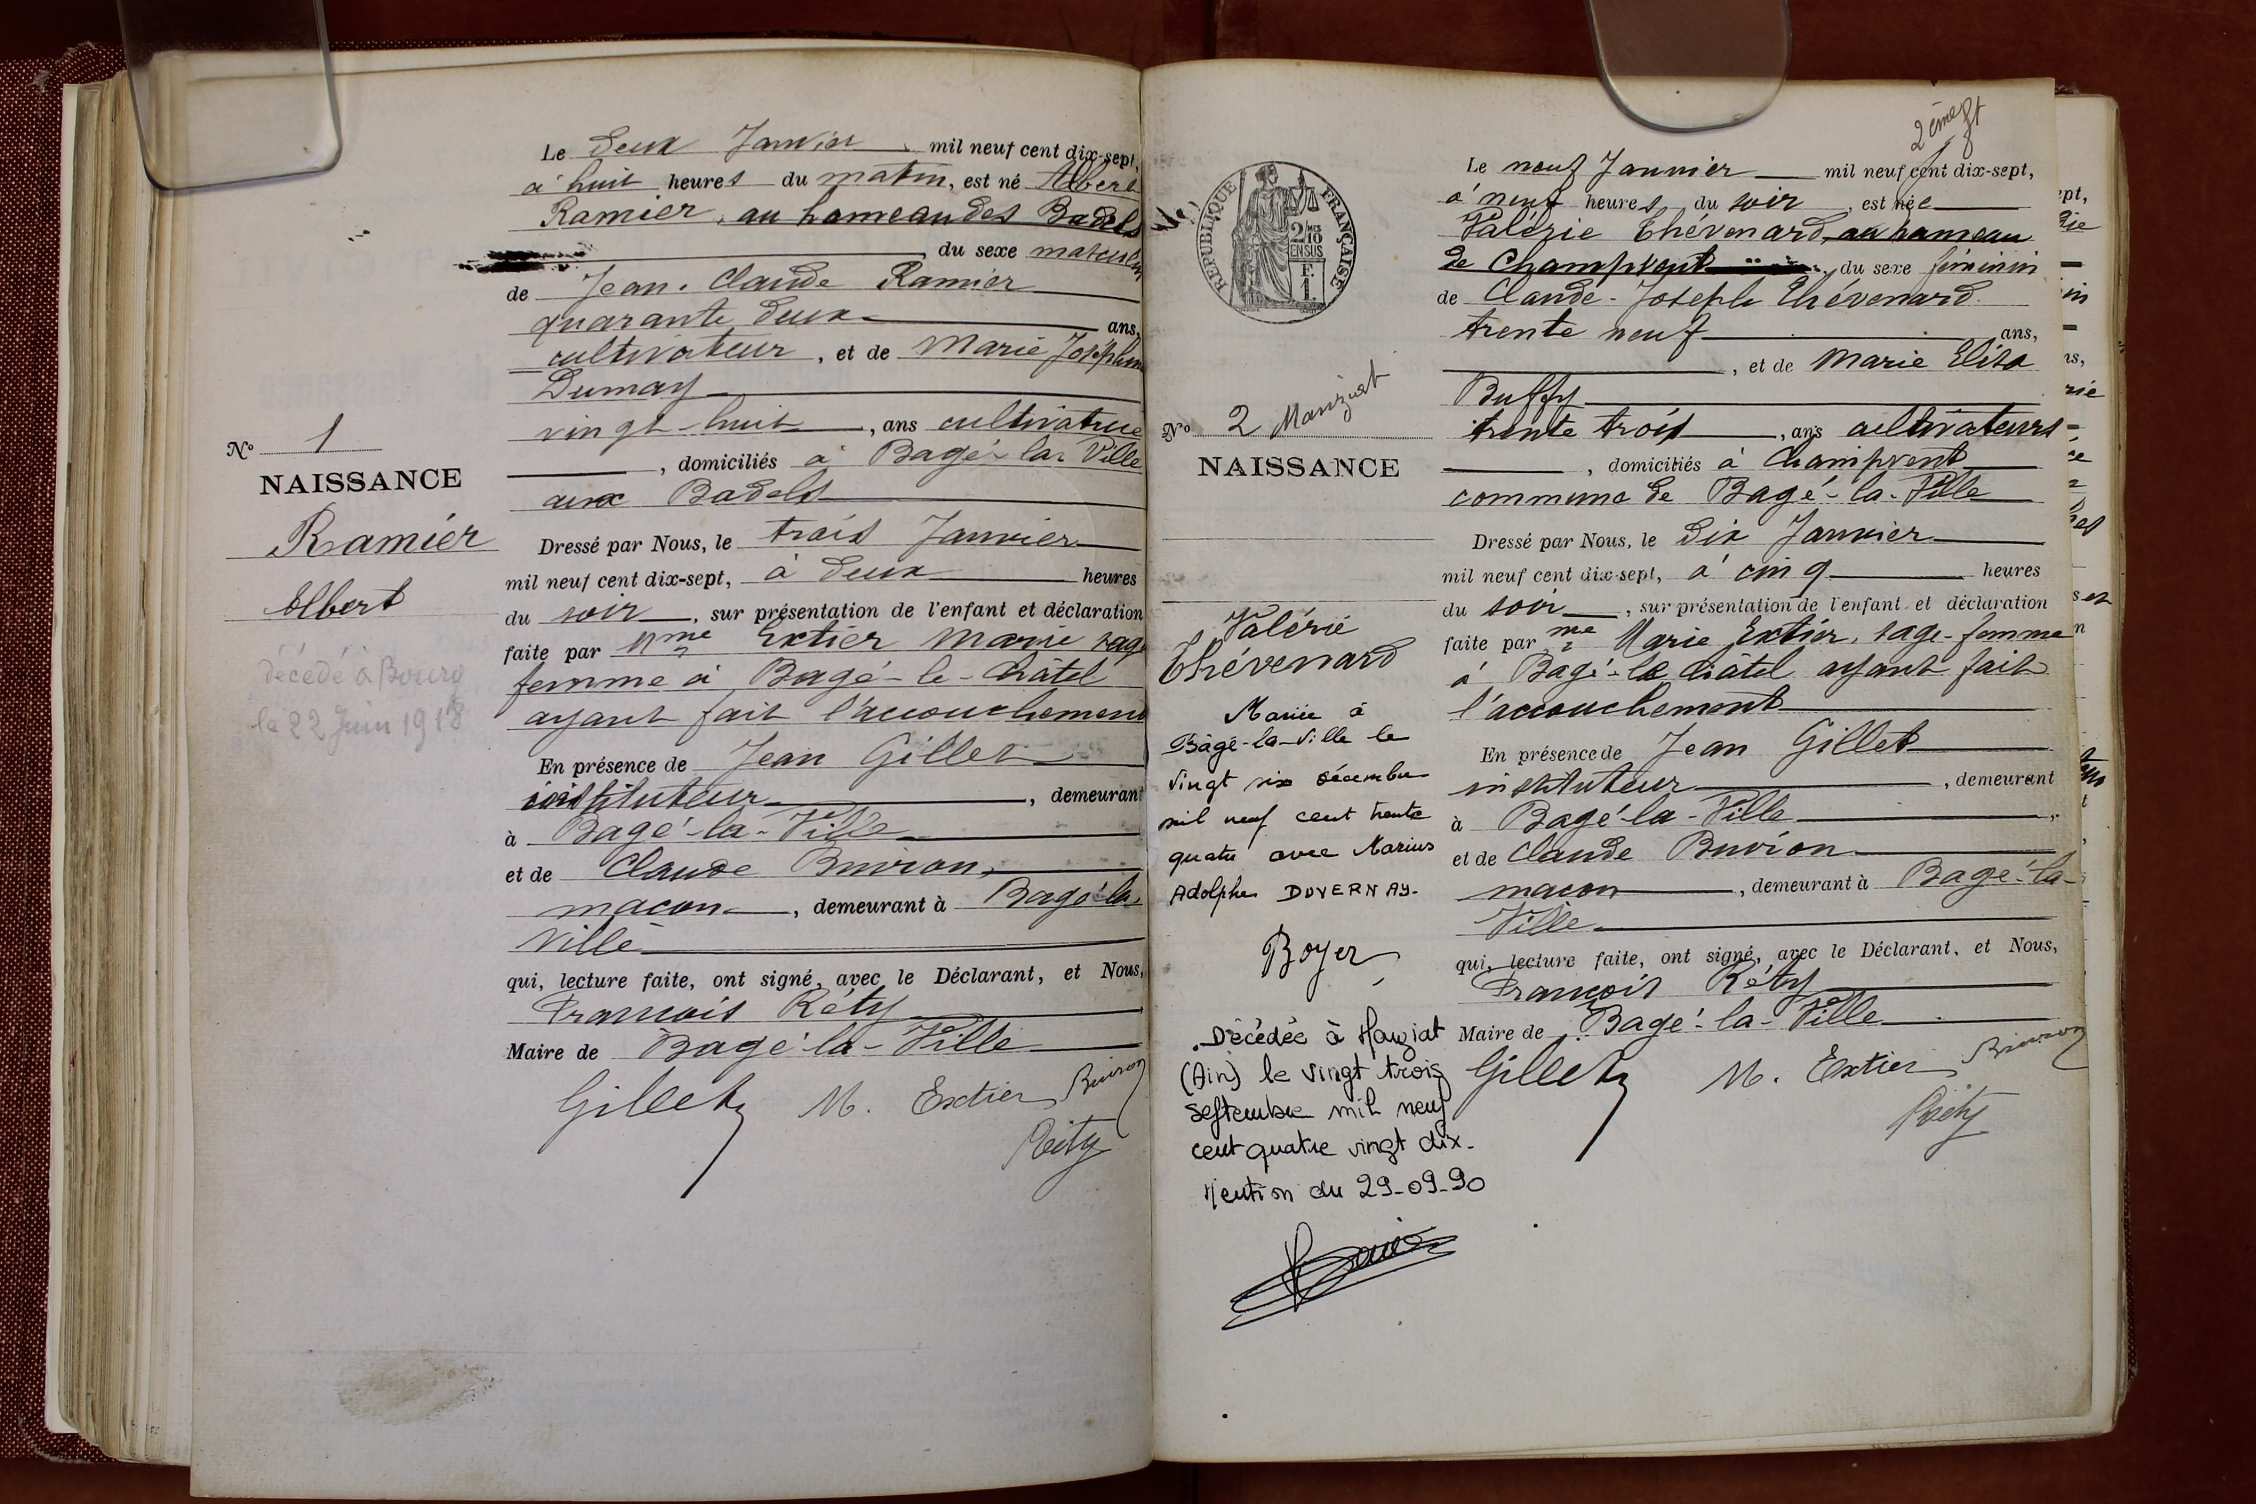 Le deux Janvier mil neuf cent dix-sept,
à huit heures du matin, est né Albert
Ramier, au hameau des Badels
du sexe masculin
de Jean-Claude Ramier
quarante deux ans,
cultivateur, et de Marie Joséphine
Dumay
vingt-huit, ans cultivatrice
, domiciliés à Bagé-la-Ville
aux Badels
Dressé par Nous, le trois Janvier
mil neuf cent dix-sept, à deux heures
du soir, sur présentation de l'enfant et déclaration
faite par Mme Extier Marie sage
femme à Bagé-le-Châtel
ayant fait l'accouchement
En présence de Jean Gillet
instituteur, demeurant
à Bagé-la-Ville
et de Claude Buiron,
maçon, demeurant à Bagé-la-
Ville
qui, lecture faite, ont signé, avec le Déclarant, et Nous,
François Réty
Maire de Bagé-la-Ville
Gillet M. Extier Buiron
Réty
No 1
NAISSANCE
Ramier
Albert
décédé à Bourg
le 22 Juin 1918
RÉPUBLIQUE FRANÇAISE
2/10
EN SUS
F.
1.
No 2 Manziat
NAISSANCE
Valérie
Thévenard
Mariée à
Bâgé-la-Ville le
vingt six décembre
mil neuf cent trente
quatre avec Marius
Adolphe DUVERNAY.
Boyer
Décédée à Manziat
(Ain) le vingt trois
septembre mil neuf
cent quatre vingt dix.
Mention du 29-09-90
2ème ft
Le neuf Janvier mil neuf cent dix-sept,
à neuf heures du soir, est née
Valérie Thévenard, au hameau
de Champvent du sexe féminin
de Claude-Joseph Thévenard
trente neuf ans,
, et de Marie Elisa
Buffy
trente trois, ans cultivateurs
, domiciliés à Champvent
commune de Bagé-la-Ville
Dressé par Nous, le dix Janvier
mil neuf cent dix-sept, à cinq heures
du soir, sur présentation de l'enfant et déclaration
faite par me Marie Extier, sage-femme
à Bagé-le Châtel ayant fait
l'accouchement
En présence de Jean Gillet
instituteur, demeurant
à Bagé-la-Ville
et de Claude Buiron
maçon, demeurant à Bagé-la-
Ville
qui, lecture faite, ont signé, avec le Déclarant, et Nous,
François Réty
Maire de Bagé-la-Ville
Gillet M. Extier Buiron
Réty